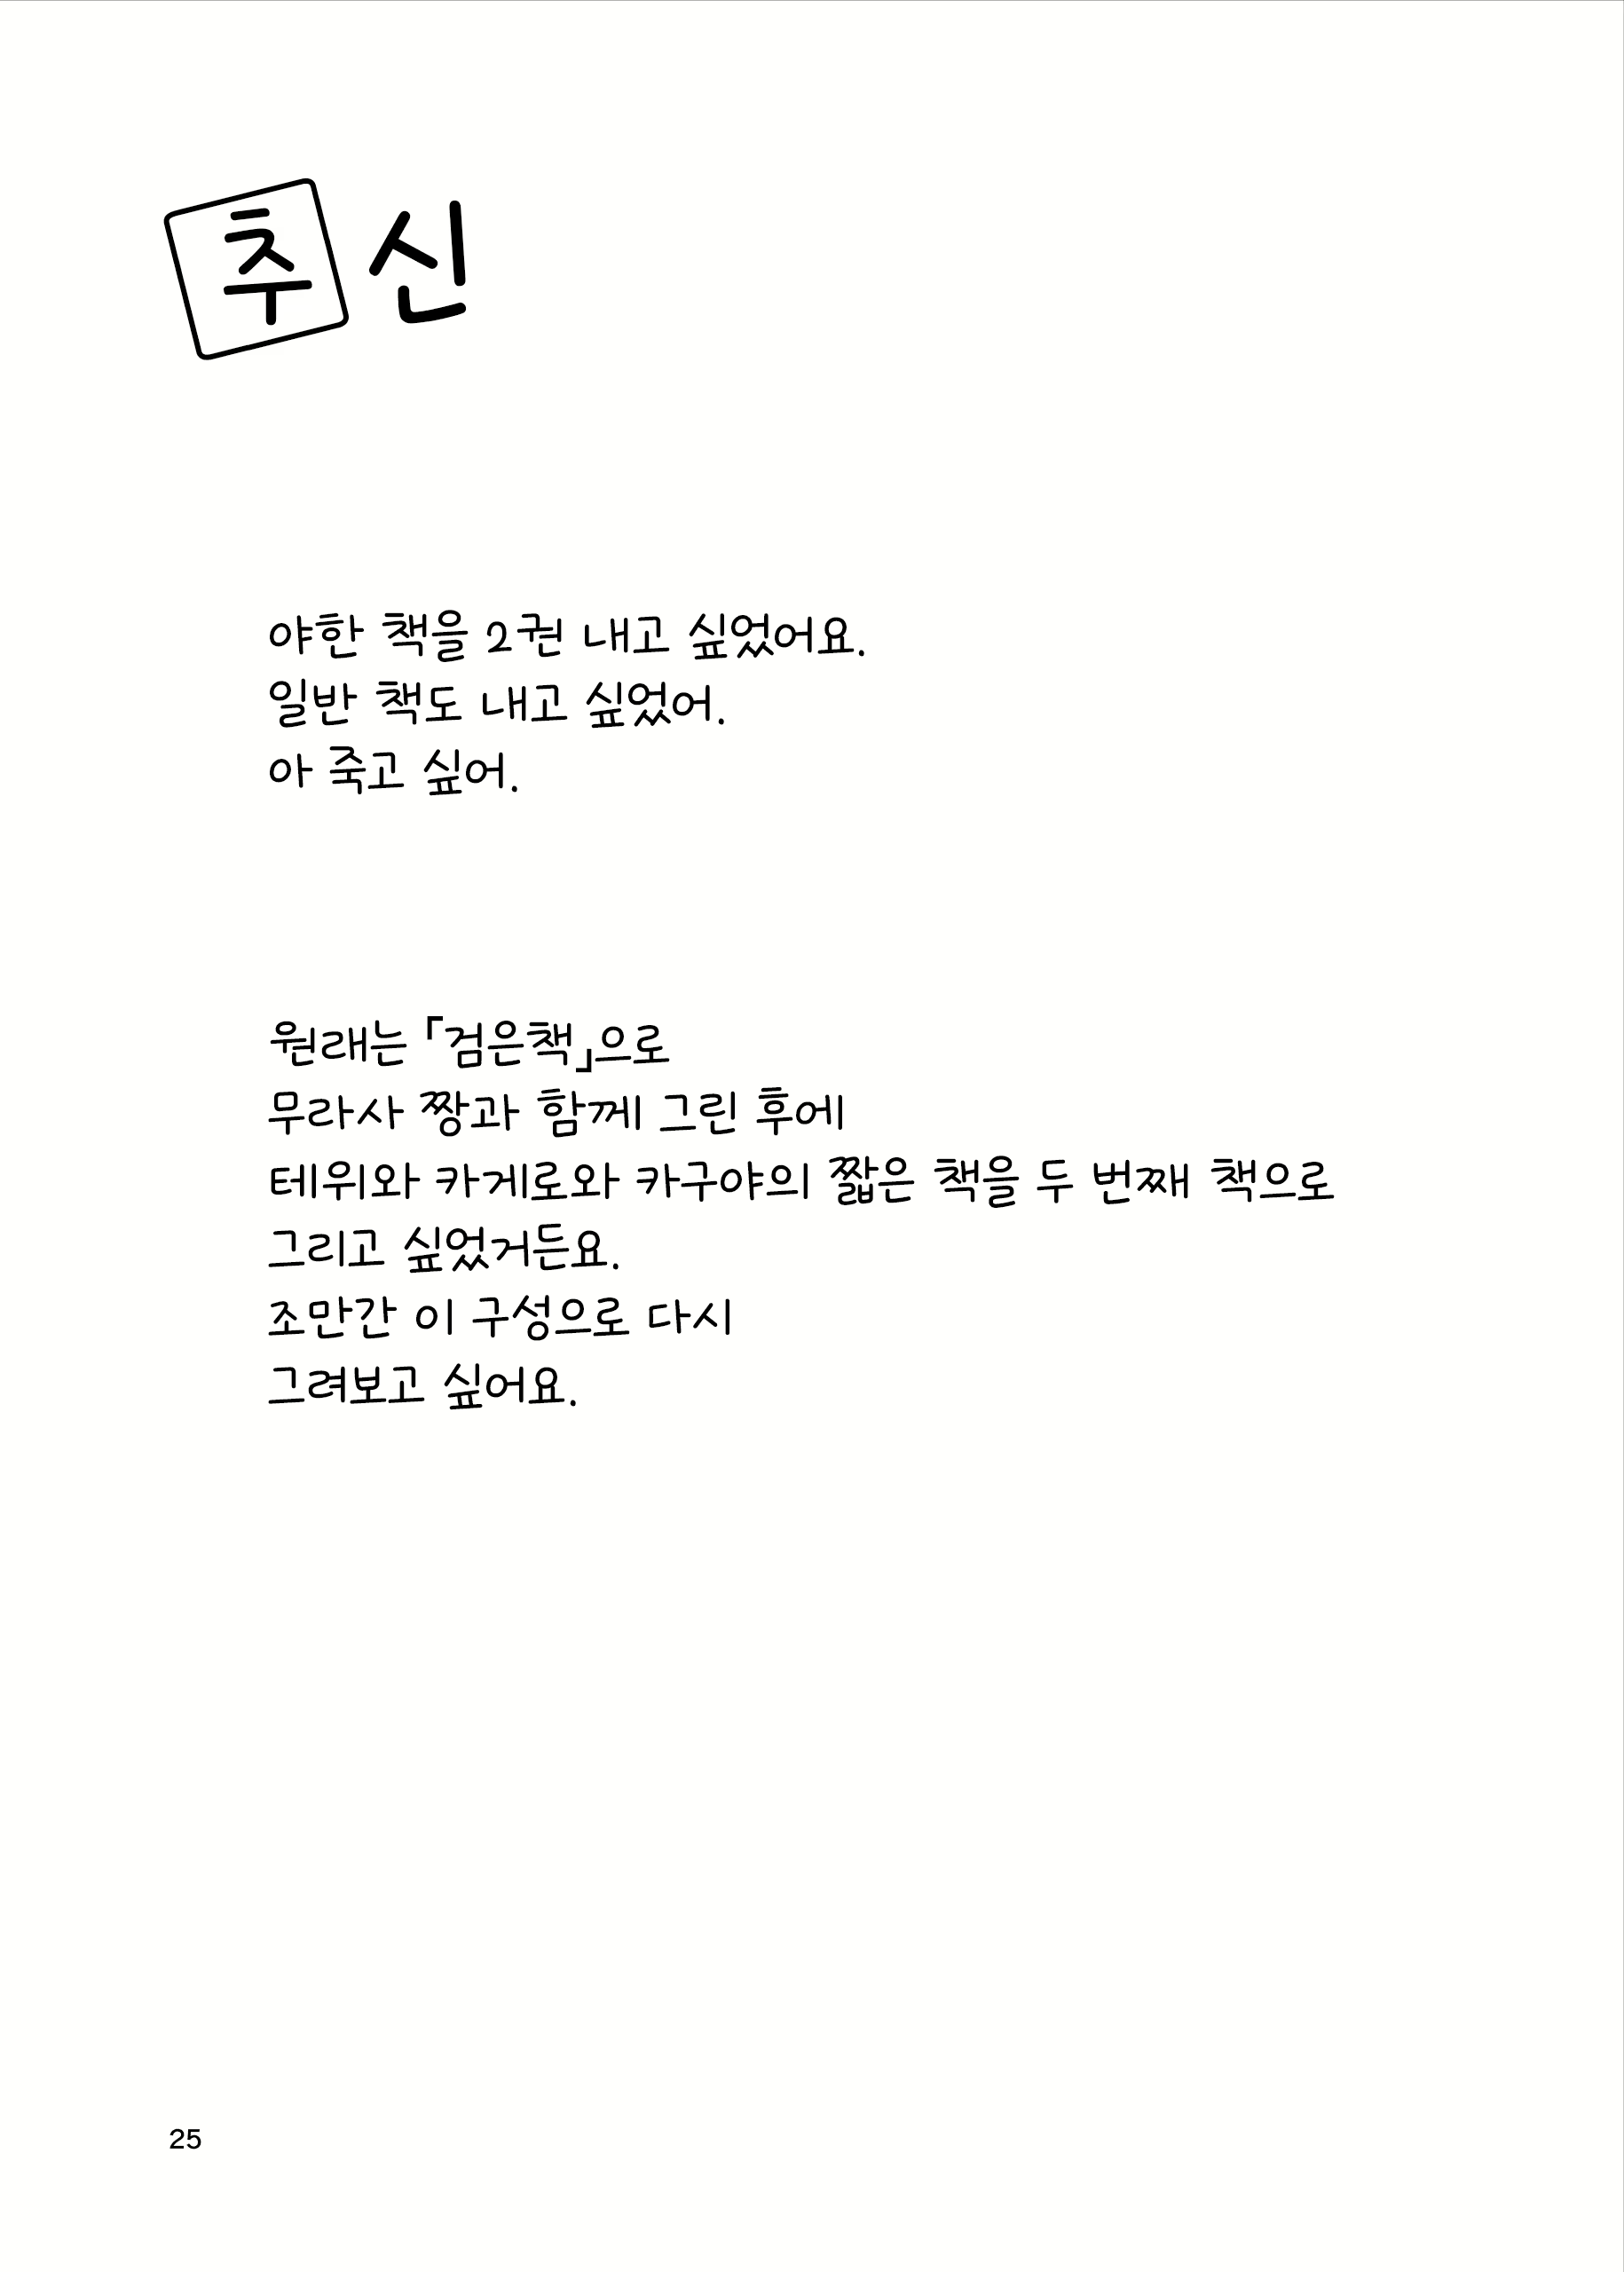 추신
야한 책을 2권 내고 싶었어요.
일반 책도 내고 싶었어.
아 죽고 싶어.
원래는 「검은책」으로
무라사 짱과 함께 그린 후에
테위와 카게로와 카구야의 짧은 책을 두 번째 책으로
그리고 싶었거든요.
조만간 이 구성으로 다시
그려보고 싶어요.
25